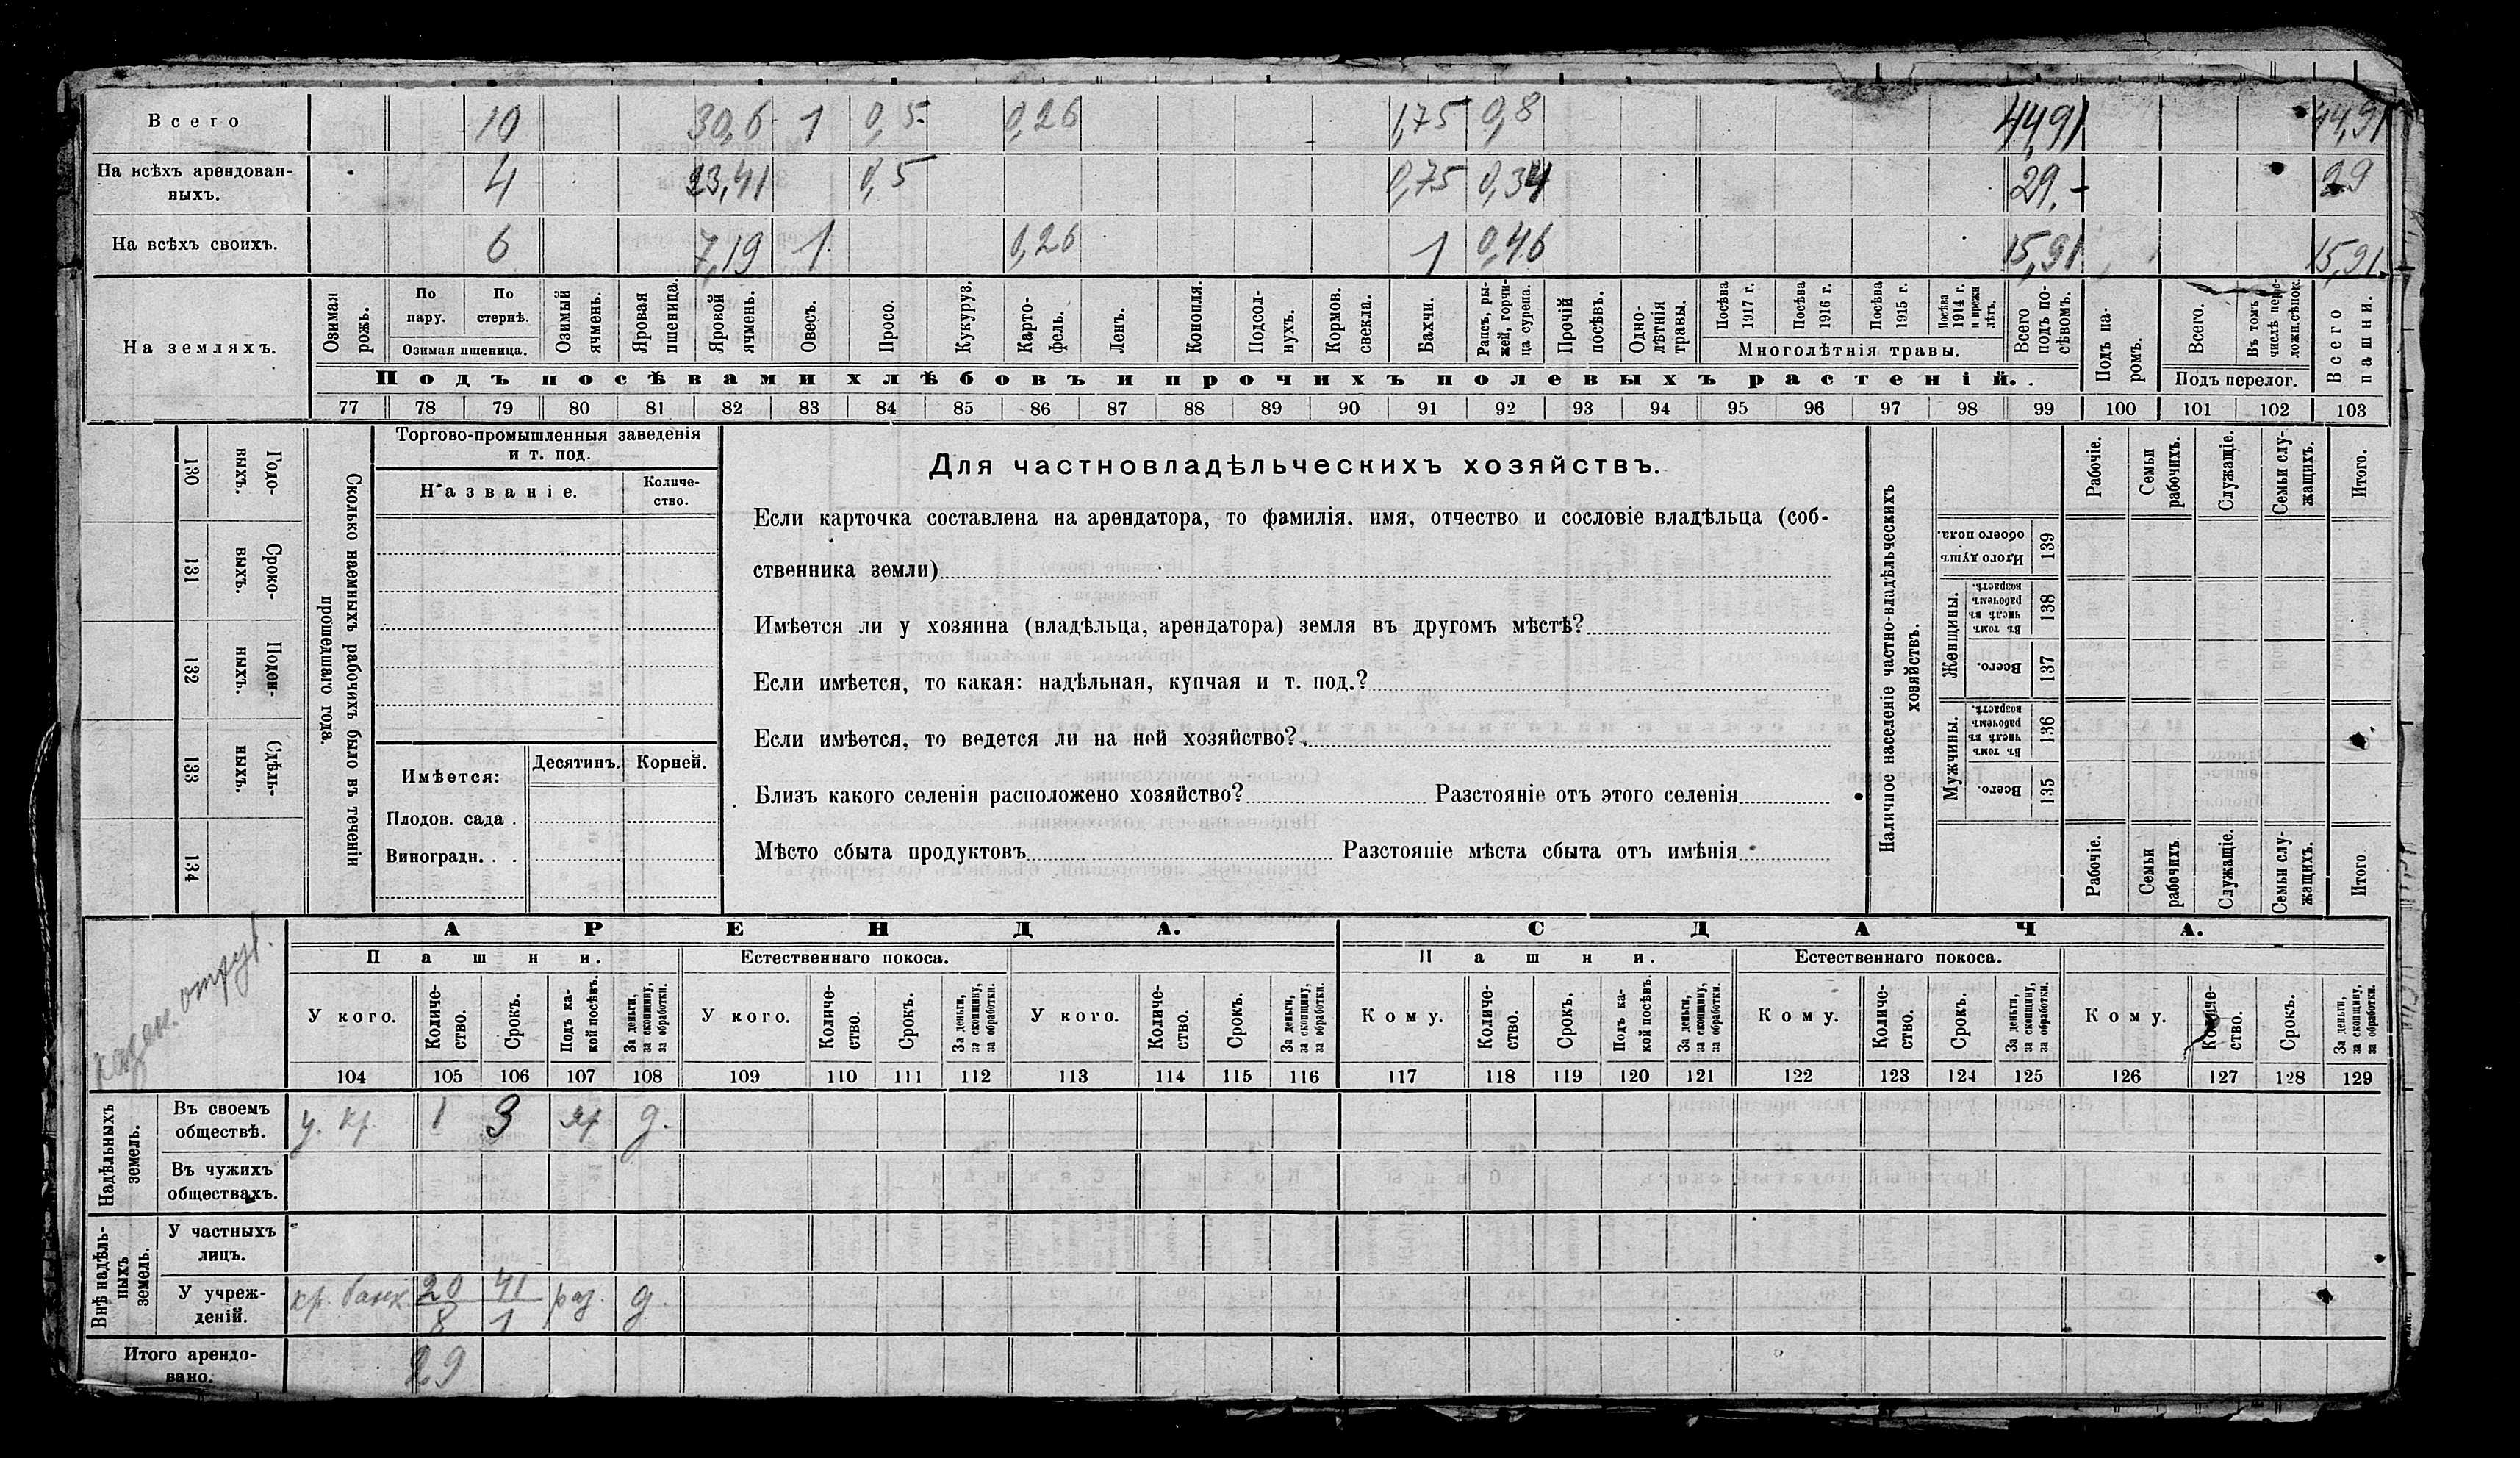 Всего 10 30,6 1 0,5 0,26 1,75 0,8 44,91 44,91
На всѣхъ арендован-
ныхъ. 4 23,41 0,5 0,75 0,34 29,- 29
На всѣхъ своихъ. 6 7,19 1 0,26 1 0,46 15,91 15,91
На земляхъ.
Озимая
рожь.
По
пару.
По
стернѣ.
Озимая пшеница.
Озимый
ячмень.
Яровая
пшеница.
Яровой
ячмень.
Овесъ.
Просо.
Кукуруз.
Карто-
фель.
Ленъ.
Конопля.
Подсол-
нухъ.
Кормов.
свекла.
Бахчи.
Рапсъ, ры-
жей, горчи-
ца сурепа.
Прочій
посѣвъ.
Одно-
лѣтнія
травы.
Посѣва
1917 г.
Посѣва
1916 г.
Посѣва
1915 г.
Посѣва
1914 г.
и прежн
лѣтъ.
Многолѣтнія травы.
Всего
подъ по-
сѣвомъ.
Подъ па-
ромъ.
Всего.
Въ томъ
числѣ пере-
ложн.сѣнок.
Подъ перелог.
Всего
пашни.
Подъ посѣвами хлѣбовъ и прочихъ полевыхъ растеній.
77 78 79 80 81 82 83 84 85 86 87 88 89 90 91 92 93 94 95 96 97 98 99 100 101 102 103
130
Годо-
выхъ.
131
Сроко-
выхъ.
132
Поден-
ныхъ.
133
Сдѣль-
ныхъ.
134
Сколько наемныхъ рабочихъ было въ теченіи
прошедшаго года.
Торгово-промышленныя заведенія
и т. под.
Названіе.
Количе-
ство.
Имѣется:
Десятинъ. Корней.
Плодов. сада .
Виноградн. . .
Для частновладѣльческихъ хозяйствъ.
Если карточка составлена на арендатора, то фамилія, имя, отчество и сословіе владѣльца (соб-
ственника земли)
Имѣется ли у хозяина (владѣльца, арендатора) земля въ другомъ мѣстѣ?
Если имѣется, то какая: надѣльная, купчая и т. под.?
Если имѣется, то ведется ли на ней хозяйство?
Близъ какого селенія расположено хозяйство? Разстояніе отъ этого селенія
Мѣсто сбыта продуктовъ Разстояніе мѣста сбыта отъ имѣнія
Наличное населеніе частно-владѣльческихъ
хозяйствъ.
Рабочіе.
Семьи
рабочихъ.
Служащіе.
Семьи слу-
жащихъ.
Итого.
Итого душъ
обоего пола.
139
Женщины.
Въ томъ
числѣ въ
рабочемъ
возрастѣ.
138
Всего.
137
Мужчины.
Въ томъ
числѣ въ
рабочемъ
возрастѣ.
136
Всего.
135
Рабочіе.
Семьи
рабочихъ.
Служащіе.
Семьи слу-
жащихъ.
Итого
казен. отруб.
АРЕНДА. СДАЧА.
Пашни. Естественнаго покоса. Пашни. Естественнаго покоса.
У кого.
Количе-
ство.
Срокъ.
Подъ ка-
кой посѣвъ.
За деньги,
за скопщину,
за обработки.
У кого.
Количе-
ство.
Срокъ.
За деньги,
за скопщину,
за обработки.
У кого.
Количе-
ство.
Срокъ.
За деньги,
за скопщину,
за обработки.
Кому.
Количе-
ство.
Срокъ.
Подъ ка-
кой посѣвъ.
За деньги,
за скопщину,
за обработки.
Кому.
Количе-
ство.
Срокъ.
За деньги,
за скопщину,
за обработки.
Кому.
Количе-
ство.
Срокъ.
За деньги,
за скопщину,
за обработки.
104 105 106 107 108 109 110 111 112 113 114 115 116 117 118 119 120 121 122 123 124 125 126 127 128 129
Надѣльныхъ
земель.
Въ своемъ
обществѣ. у. кр. 1 3 яр д.
Въ чужихъ
обществахъ.
Внѣ надѣль-
ныхъ
земель.
У частныхъ
лицъ.
У учреж-
деній. кр. банк 20 41 раз. д.
8 1
Итого арендо-
вано. 29